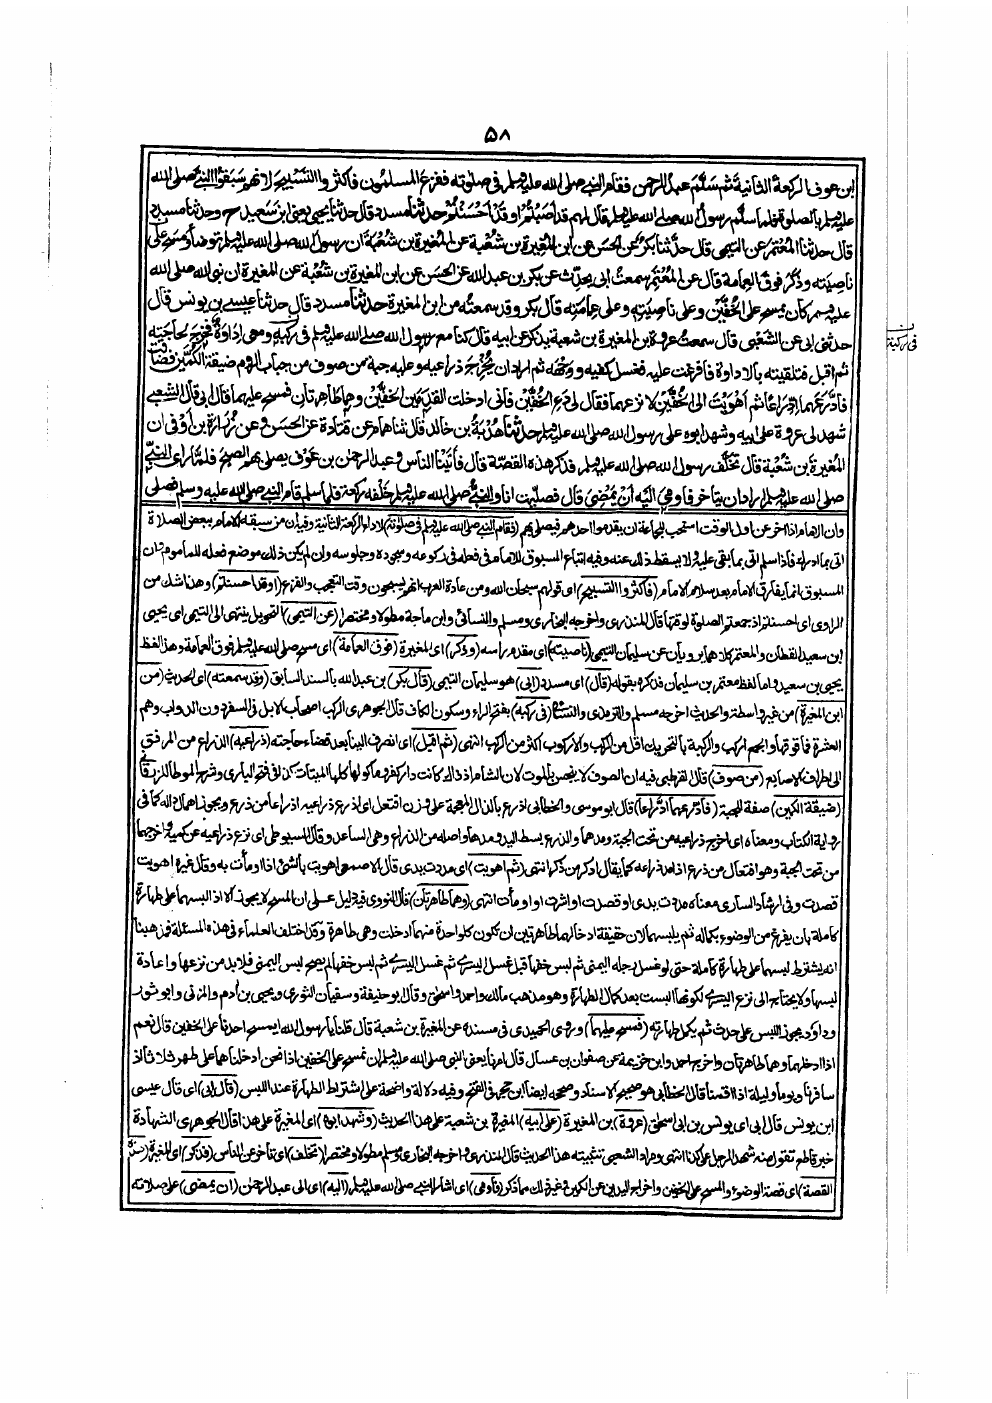 ٥٨
ابن عوف الركعة الثانية ثم سلم عبد الرحمن فقام النبي صلى الله عليه وسلم في صلوته ففزع المسلمون فاكثروا التسبيح لانهم سبقوا النبي صلى الله
عليه وسلم بالصلوة فلما سلم رسول الله صلى الله عليه وسلم قال لهم قد اصبتم او قد احسنتم حدثنا مسدد قال حدثنا يحيى يعنى ابن سعيد ح وحدثنا مسدد
قال حدثنا المعتمر عن التيمي قال حدثنا بكر عن الحسن عن ابن المغيرة بن شعبة عن المغيرة بن شعبة ان رسول الله صلى الله عليه وسلم توضأ ومسح على
ناصيته وذكر فوق العمامة قال عن المعتمر سمعت ابى يحدث عن بكر بن عبد الله عن الحسن عن ابن المغيرة بن شعبة عن المغيرة ان نبي الله صلى الله
عليه وسلم كان يمسح على الخفين وعلى ناصيته وعلى عمامته قال بكر وقد سمعته من ابن المغيرة حدثنا مسدد قال حدثنا عيسى بن يونس قال
حدثنى ابى عن الشعبى قال سمعت عروة بن المغيرة بن شعبة يذكر عن ابيه قال كنا مع رسول الله صلى الله عليه وسلم في ركبه ومعى اداوة فخرج لحاجته
ثم اقبل فتلقيته بالاداوة فافرغت عليه فغسل كفيه ووجهه ثم اراد ان يخرج ذراعيه وعليه جبة من صوف من جباب الروم ضيقة الكمين فضاقت
فادرعهما ادراعا ثم اهويت الى الخفين لانزعهما فقال لى دع الخفين فانى ادخلت القدمين الخفين وهما طاهرتان فمسح عليهما قال ابى قال الشعبى
شهد لى عروة على ابيه وشهد ابوه على رسول الله صلى الله عليه وسلم حدثنا هدبة بن خالد قال ثنا همام عن قتادة عن الحسن وعن زرارة بن اوفى ان
المغيرة بن شعبة قال تخلف رسول الله صلى الله عليه وسلم فذكر هذه القصة قال فاتينا الناس وعبد الرحمن بن عوف يصلى بهم الصبح فلما راى النبي
صلى الله عليه وسلم اراد ان يتاخر فاومى اليه ان يمضى قال فصليت انا والنبي صلى الله عليه وسلم خلفه ركعة فلما سلم قام النبي صلى الله عليه وسلم فصلى
وان الامام اذا اخر عن اول الوقت استحب للجماعة ان يقدموا احدهم فيصلى بهم (فقام النبي صلى الله عليه وسلم في صلوته) لاداء الركعة الثانية وفيه ان من سبقه الامام ببعض الصلاة
اتى بما ادرك فاذا سلم اتى بما بقى عليه ولا يسقط ذلك عنه وفيه اتباع المسبوق للامام في فعله في ركوعه وسجوده وجلوسه وان لم يكن ذلك موضع فعله للماموم وان
المسبوق انما يفارق الامام بعد سلام الامام (فاكثروا التسبيح) اى قولهم سبحان الله ومن عادة العرب انهم يسبحون وقت التعجب والفزع (او قد احسنتم) وهذا شك من
الراوى اى احسنتم اذ جمعتم الصلوة لوقتها قال المنذرى واخرجه البخارى ومسلم والنسائى وابن ماجة مطولا ومختصرا (عن التيمى) التحويل ينتهى الى التيمى اى يحيى
ابن سعيد القطان والمعتمر كلاهما يرويان عن سليمان التيمى (ناصيته) اى مقدم راسه (وذكر) اى المغيرة (فوق العمامة) اى مسح صلى الله عليه وسلم فوق العمامة وهذا لفظ
يحيى بن سعيد واما لفظ معتمر بن سليمان فذكره بقوله (قال) اى مسدد (ابى) هو سليمان التيمى (قال بكر) بن عبد الله بالسند السابق (وقد سمعته) اى الحديث (من
ابن المغيرة) من غير واسطة والحديث اخرجه مسلم والترمذى والنسائى (فى ركبه) بفتح الراء وسكون الكاف قال الجوهرى الركب اصحاب الابل فى السفر دون الدواب وهم
العشرة فما فوقها والجمع اركب والركبة بالتحريك اقل من الركب والاركوب اكثر من الركب انتهى (ثم اقبل) اى انصرف الينا بعد قضاء حاجته (ذراعيه) الذراع من المرفق
الى اطراف الاصابع (من صوف) قال القرطبى فيه ان الصوف لا ينجس بالموت لان الشام اذ ذاك كانت دار كفر وماكولها كلها الميتات كذا فى فتح البارى وشرح الموطا للزرقانى
(ضيقة الكمين) صفة للجبة (فادرعهما ادراعا) قال ابو موسى والخطابى اذرع بالذال المعجمة على وزن افتعل اى اذرع ذراعيه اذراعا من ذرع ويجوز اهمال داله كما فى
رواية الكتاب ومعناه اى اخرج ذراعيه من تحت الجبة ومدهما والذرع بسط اليد ومدها واصله من الذراع وهى الساعد وقال السيوطى اى نزع ذراعيه عن كميه واخرجهما
من تحت الجبة وهو افتعال من ذرع اذا مد ذراعه كما يقال ادكر من ذكر انتهى (ثم اهويت) اى مددت يدى قال الاصمعى اهويت بالشئ اذا اومأت به وقال غيره اهويت
قصدت وفى ارشاد السارى معناه مددت يدى او قصدت او اشرت او اومأت انتهى (وهما طاهرتان) قال النووى فيه دليل على ان المسح لا يجوز الا اذا لبسهما على طهارة
كاملة بان يفرغ من الوضوء بكماله ثم يلبسهما لان حقيقة ادخالهما طاهرتين ان تكون كل واحدة منهما ادخلت وهى طاهرة وقد اختلف العلماء فى هذه المسئلة فمذهبنا
انه يشترط لبسهما على طهارة كاملة حتى لو غسل رجله اليمنى ثم لبس خفها قبل غسل اليسرى ثم غسل اليسرى ثم لبس خفها لم يصح لبس اليمنى فلا بد من نزعها واعادة
لبسها ولا يحتاج الى نزع اليسرى لكونها البست بعد كمال الطهارة وهو مذهب مالك واحمد واسحق وقال ابو حنيفة وسفيان الثورى ويحيى بن ادم والمزنى وابو ثور
وداود يجوز اللبس على حدث ثم يكمل طهارته (فمسح عليهما) وروى الحميدى فى مسنده عن المغيرة بن شعبة قال قلنا يا رسول الله ايمسح احدنا على الخفين قال نعم
اذا ادخلهما وهما طاهرتان واخرج احمد وابن خزيمة عن صفوان بن عسال قال امرنا يعنى النبى صلى الله عليه وسلم ان نمسح على الخفين اذا نحن ادخلناهما على طهر ثلاثا اذا
سافرنا ويوما وليلة اذا اقمنا قال الخطابى هو صحيح الاسناد وصححه ايضا ابن حجر فى الفتح وفيه دلالة واضحة على اشتراط الطهارة عند اللبس (قال ابى) اى قال عيسى
ابن يونس قال ابى اى يونس بن ابى اسحق (عروة) بن المغيرة (على ابيه) المغيرة بن شعبة على هذا الحديث (وشهد ابوه) اى المغيرة على هذا قال الجوهرى الشهادة
خبر قاطع تقول منه شهد الرجل على كذا انتهى ومراد الشعبى تثبيته هذا الحديث قال المنذرى واخرجه البخارى ومسلم مطولا ومختصرا (تخلف) اى تأخر عن الناس (فذكر) اى المغيرة (هذه
القصة) اى قصة الوضوء والمسح على الخفين واخراج اليدين عن الكمين وغير ذلك مما ذكر (فاومى) اى اشار النبى صلى الله عليه وسلم (اليه) اى الى عبد الرحمن (ان يمضى) على صلاته